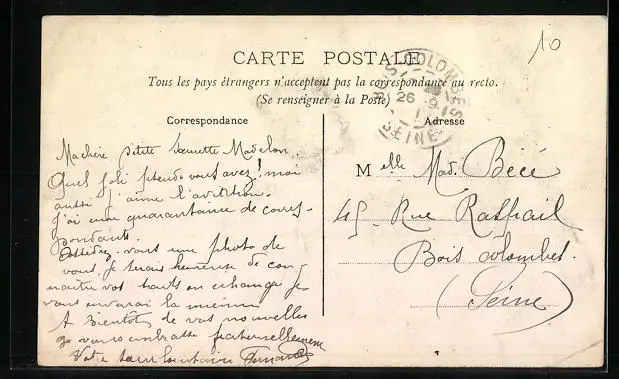 10
CARTE POSTALE
Tous les pays étrangers n'acceptent pas la correspondance au recto.
(Se renseigner à la Poste)
Correspondance
Adresse
BOIS-COLOMBES
26 9
SEINE
Ma chère petite Madelon
Quel joli avez vous! moi
aussi j'aime l'aviation.
J'ai une quarantaine de corres-
pondants.
Possédez-vous une photo de
vous, je serais heureuse de con
naitre vos traits en echange je
vous enverrai la mienne
A bientôt de vos nouvelles
je vous embrasse fraternellement
Votre Fernande
Melle Mad. Bécé
45, Rue Raspail
Bois Colombes.
(Seine)